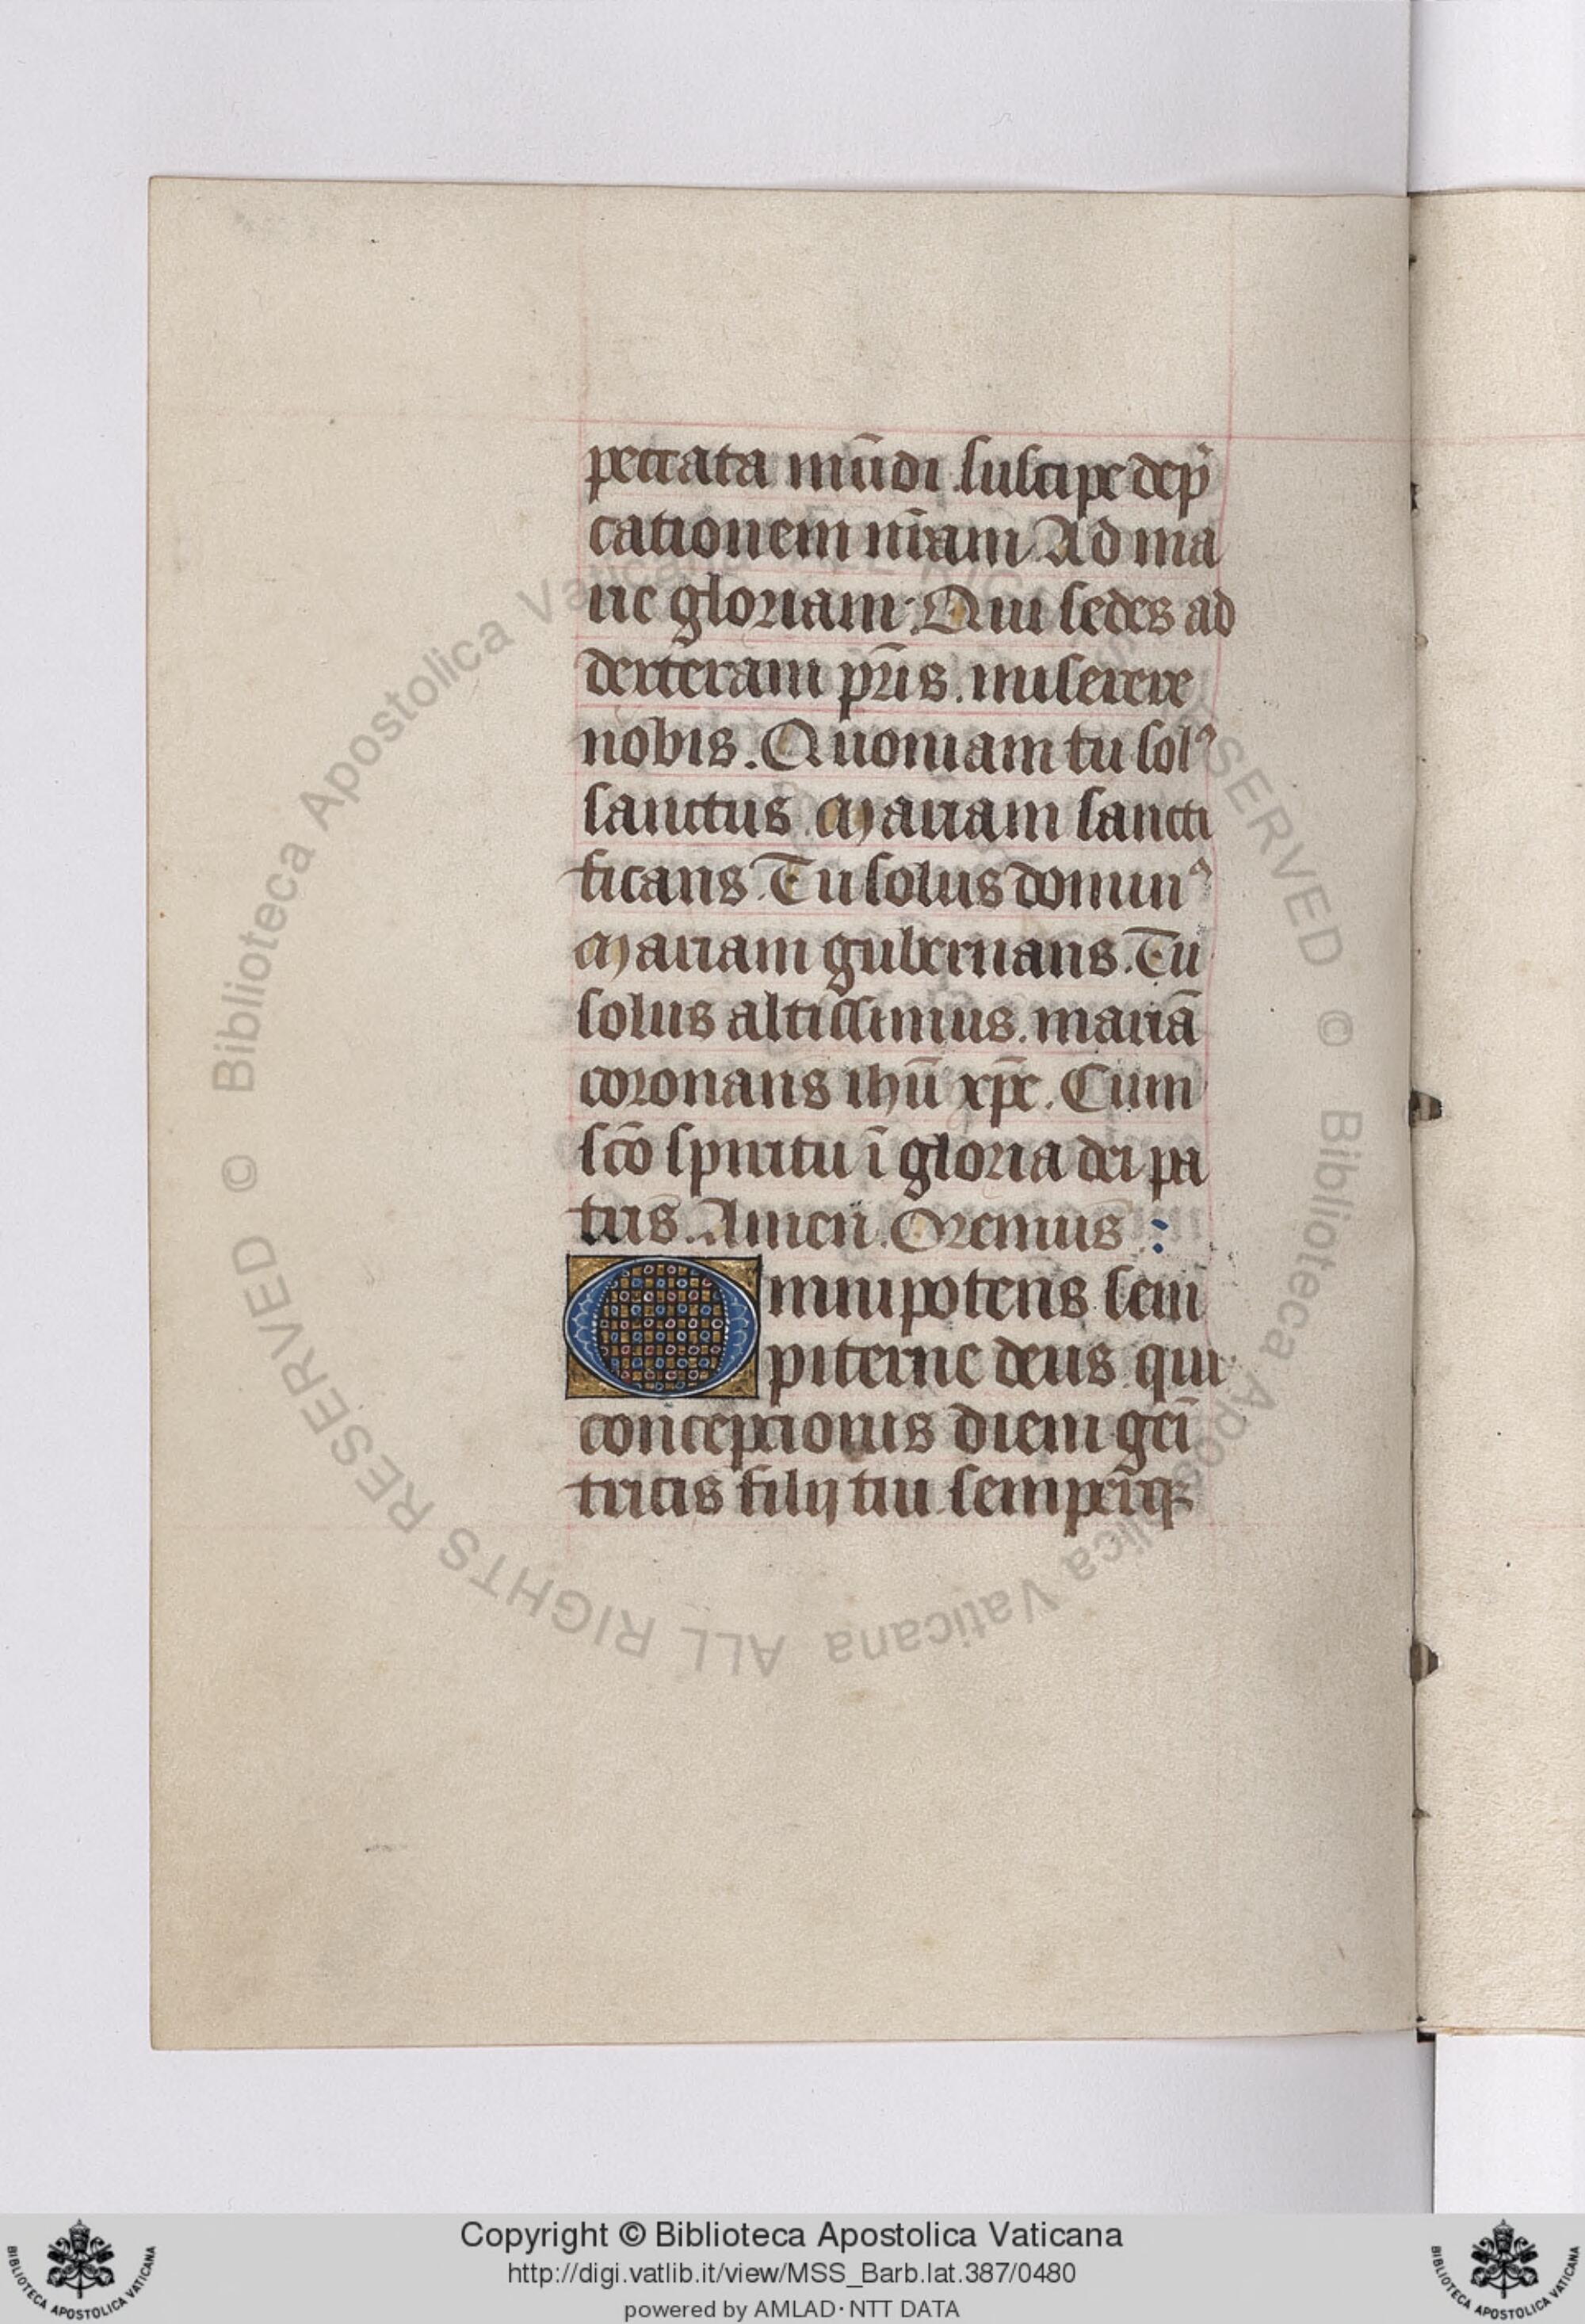 peccata mu̅di suscipe dep̅
cationem nr̅am Ad ma
rie gloriam. Qui sedes ad
dexteram pr̅is. miserere
nobis. Quoniam tu solꝰ
sanctus. Mariam sancti
ficans. Tu solus dominꝰ
Mariam gubernans. Tu
solus altissimus. maria̅
coronans ihu̅ xp̅e. Cum
sc̅o spiritu i̅ gloria dei pa
tris. Amen. Oremus :
Omnipotens sem
piterne deus qui
conceptionis diem gei̅
tricis filij tui semperq̅ꝫ
© Biblioteca Apostolica Vaticana ALL RIGHTS RESERVED © Biblioteca Apostolica Vaticana ALL RIGHTS RESERVED
Copyright © Biblioteca Apostolica Vaticana
http://digi.vatlib.it/view/MSS_Barb.lat.387/0480
powered by AMLAD · NTT DATA
BIBLIOTECA APOSTOLICA VATICANA
BIBLIOTECA APOSTOLICA VATICANA